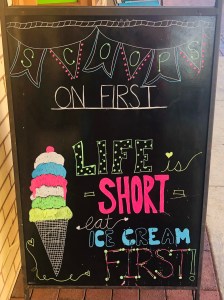 SCOOPS
ON FIRST
LIFE is
- SHORT -
eat
ICE CREAM
FIRST!